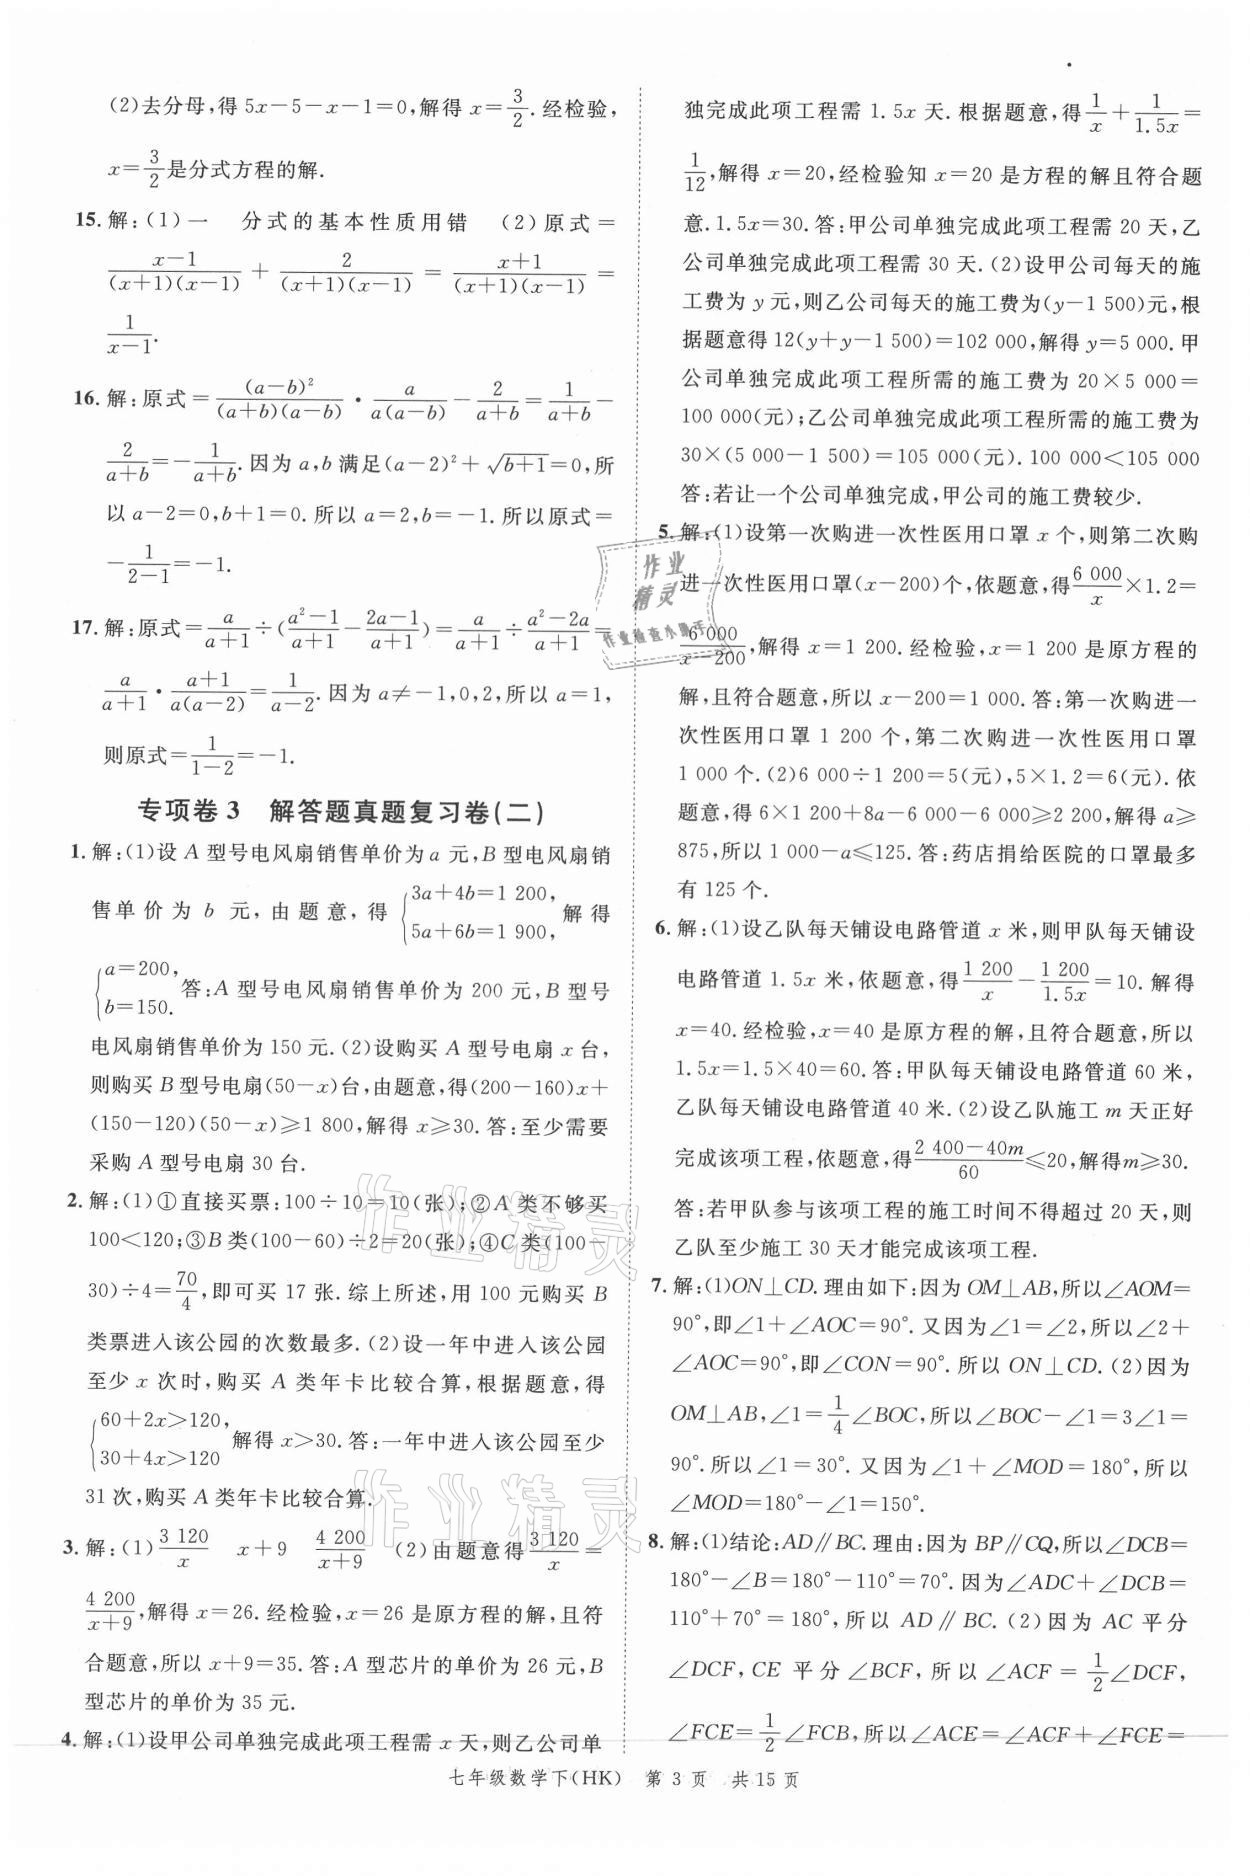 (2)去分母,得 5x-5-x-1=0,解得 x=3/2.经检验,
x=3/2是分式方程的解.
15.解:(1)一 分式的基本性质用错 (2)原式=
(x-1)/((x+1)(x-1))+2/((x+1)(x-1))=(x+1)/((x+1)(x-1))=
1/(x-1).
16.解:原式=(a-b)²/((a+b)(a-b))·a/(a(a-b))-2/(a+b)=1/(a+b)-
2/(a+b)=-1/(a+b).因为 a,b 满足(a-2)²+√(b+1)=0,所
以 a-2=0,b+1=0.所以 a=2,b=-1.所以原式=
-1/(2-1)=-1.
17.解:原式=a/(a+1)÷((a²-1)/(a+1)-(2a-1)/(a+1))=a/(a+1)÷(a²-2a)/(a+1)=
a/(a+1)·(a+1)/(a(a-2))=1/(a-2).因为 a≠-1,0,2,所以 a=1,
则原式=1/(1-2)=-1.
专项卷 3 解答题真题复习卷(二)
1.解:(1)设 A 型号电风扇销售单价为 a 元,B 型电风扇销
售单价为 b 元,由题意,得{3a+4b=1 200, 5a+6b=1 900,解得
{a=200, b=150.答:A 型号电风扇销售单价为 200 元,B 型号
电风扇销售单价为 150 元.(2)设购买 A 型号电扇 x 台,
则购买 B 型号电扇(50-x)台,由题意,得(200-160)x+
(150-120)(50-x)⩾1 800,解得 x⩾30.答:至少需要
采购 A 型号电扇 30 台.
2.解:(1)①直接买票:100÷10=10(张);②A 类不够买
100<120;③B 类(100-60)÷2=20(张);④C 类(100-
30)÷4=70/4,即可买 17 张.综上所述,用 100 元购买 B
类票进入该公园的次数最多.(2)设一年中进入该公园
至少 x 次时,购买 A 类年卡比较合算,根据题意,得
{60+2x>120, 30+4x>120 解得 x>30.答:一年中进入该公园至少
31 次,购买 A 类年卡比较合算.
3.解:(1)3 120/x x+9 4 200/(x+9) (2)由题意得3 120/x=
4 200/(x+9),解得 x=26.经检验,x=26 是原方程的解,且符
合题意,所以 x+9=35.答:A 型芯片的单价为 26 元,B
型芯片的单价为 35 元.
4.解:(1)设甲公司单独完成此项工程需 x 天,则乙公司单
独完成此项工程需 1.5x 天.根据题意,得1/x+1/1.5x=
1/12,解得 x=20,经检验知 x=20 是方程的解且符合题
意.1.5x=30.答:甲公司单独完成此项工程需 20 天,乙
公司单独完成此项工程需 30 天.(2)设甲公司每天的施
工费为 y 元,则乙公司每天的施工费为(y-1 500)元,根
据题意得 12(y+y-1 500)=102 000,解得 y=5 000.甲
公司单独完成此项工程所需的施工费为 20×5 000=
100 000(元);乙公司单独完成此项工程所需的施工费为
30×(5 000-1 500)=105 000(元).100 000<105 000
答:若让一个公司单独完成,甲公司的施工费较少.
5.解:(1)设第一次购进一次性医用口罩 x 个,则第二次购
进一次性医用口罩(x-200)个,依题意,得6 000/x×1.2=
6 000/(x-200),解得 x=1 200.经检验,x=1 200 是原方程的
解,且符合题意,所以 x-200=1 000.答:第一次购进一
次性医用口罩 1 200 个,第二次购进一次性医用口罩
1 000 个.(2)6 000÷1 200=5(元),5×1.2=6(元).依
题意,得 6×1 200+8a-6 000-6 000⩾2 200,解得 a⩾
875,所以 1 000-a⩽125.答:药店捐给医院的口罩最多
有 125 个.
6.解:(1)设乙队每天铺设电路管道 x 米,则甲队每天铺设
电路管道 1.5x 米,依题意,得1 200/x-1 200/1.5x=10.解得
x=40.经检验,x=40 是原方程的解,且符合题意,所以
1.5x=1.5×40=60.答:甲队每天铺设电路管道 60 米,
乙队每天铺设电路管道 40 米.(2)设乙队施工 m 天正好
完成该项工程,依题意,得(2 400-40m)/60⩽20,解得m⩾30.
答:若甲队参与该项工程的施工时间不得超过 20 天,则
乙队至少施工 30 天才能完成该项工程.
7.解:(1)ON⊥CD.理由如下:因为 OM⊥AB,所以∠AOM=
90°,即∠1+∠AOC=90°.又因为∠1=∠2,所以∠2+
∠AOC=90°,即∠CON=90°.所以 ON⊥CD.(2)因为
OM⊥AB,∠1=1/4∠BOC,所以∠BOC-∠1=3∠1=
90°.所以∠1=30°.又因为∠1+∠MOD=180°,所以
∠MOD=180°-∠1=150°.
8.解:(1)结论:AD∥BC.理由:因为 BP∥CQ,所以∠DCB=
180°-∠B=180°-110°=70°.因为∠ADC+∠DCB=
110°+70°=180°,所以 AD∥BC.(2)因为 AC 平分
∠DCF,CE 平分∠BCF,所以∠ACF=1/2∠DCF,
∠FCE=1/2∠FCB,所以∠ACE=∠ACF+∠FCE=
七年级数学下(HK) 第 3 页 共15页
作业
精灵
作业检查小助手
作业精灵
作业精灵